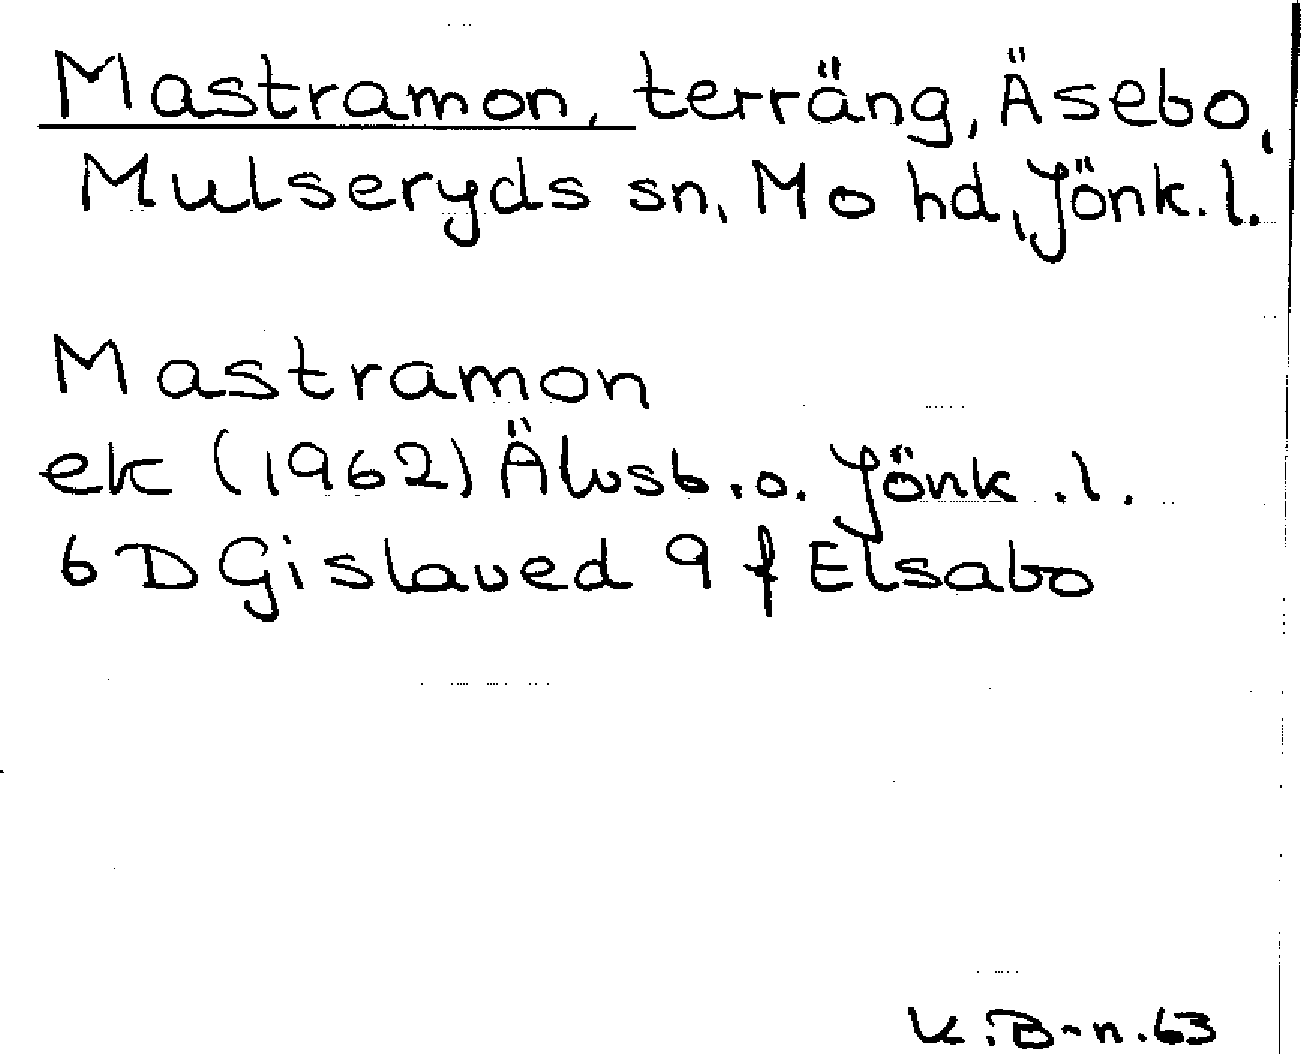 Mastramon, terräng, Äsebo,
Mulseryds sn, Mo hd, Jönk.l.
Mastramon
ek (1962) Älvsb.o. Jönk.l.
6D Gislaved 9 f Elsabo
K.B-n.63